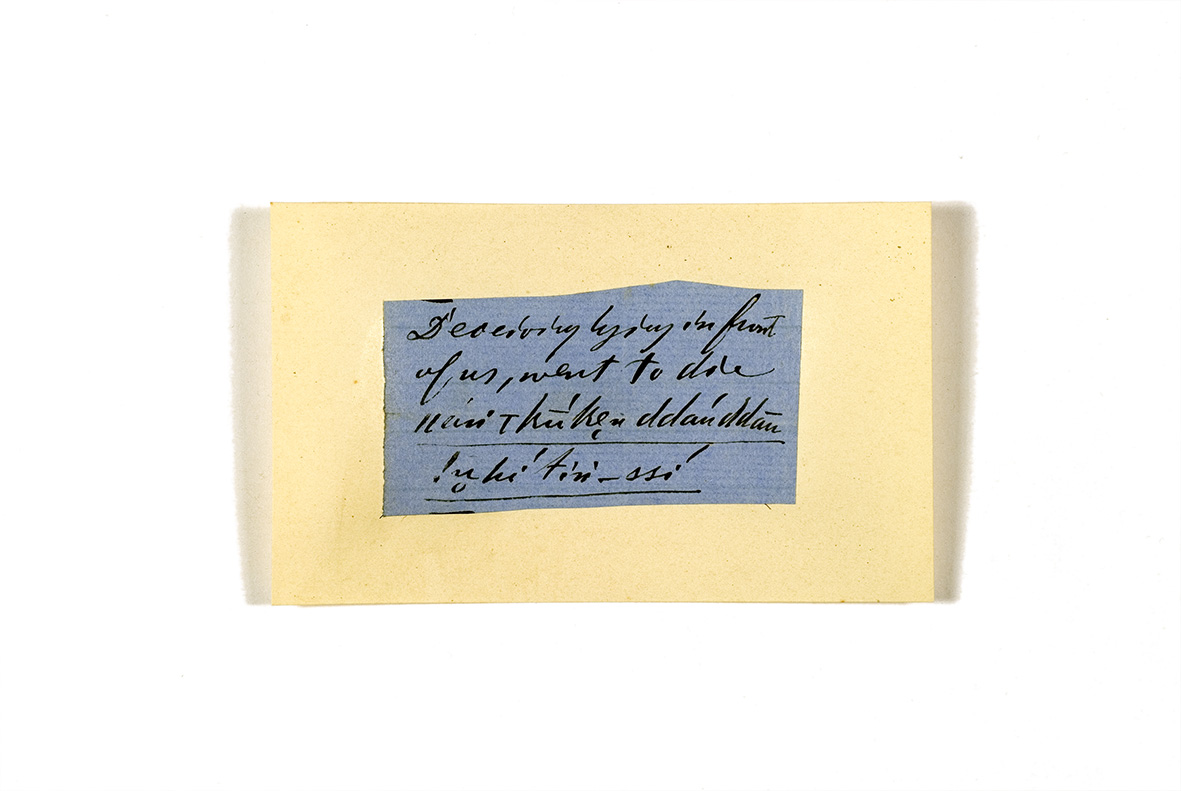 Deceiving lying in front
of us, went to die
⊤kúkẹn ddáúddāu
!ṵhí tin-ssí